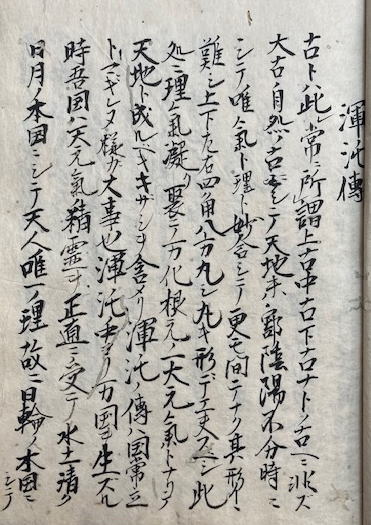 渾沌傳
古トハ此ニ常ニ所謂上古中古下古ナトノ古ニ非ズ
大古ノ自然ノ古ニシテ天地未剖陰陽不分時ニ
シテ唯氣ト理ト妙合シテ更ニ間テナク其形イヽ
難シ上下左右四角八方丸シ丸キ形デ工夫スベシ此
処ニ理氣凝リ聚テ万化根元一大元氣トナリテ
天地ト成ルベキキザシヲ含メリ渾沌ノ傳ハ国常立
トマギレヌ様ガ大事也渾沌中ヨリ万国ヲ生ズル
時吾国ハ大元氣ノ精霊ヲ正直ニ受テ水土清ク
日月ノ本国ニシテ天人唯一ノ理故ニ日輪ノ本国ニ
シテ